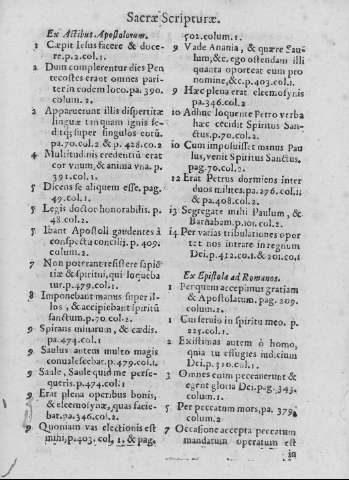 Sacræ Scripturæ.
Ex Actibus Apostolorum.
1 Cæpit Iesus facere & doce-
re. p.2. col.1.
2 Dum complerentur dies Pen
tecostes erant omnes pari-
ter in eodem loco. pa. 390.
colum. 2.
2 Apparuerunt illis dispertitæ
linguæ tanquam ignis se-
ditq; super singulos eorū.
pa.70. col.2 & p. 428. co.2
4 Multitudinis credentiū erat
cor vnum, & anima vna. p.
391. col.1.
5 Dicens se aliquem esse. pag.
49. col.1.
5 Legis doctor honorabilis. p.
48. col.2.
5 Ibant Apostoli gaudentes à
conspectu concilij. p. 409.
colum.2.
7 Non poterant resistere sapiē
tiæ & spiritui, qui loqueba
tur. p.479. col.1.
8 Imponebant manus super il-
los, & accipiebant spiritū
sanctum. p.70. col.2.
9 Spirans minarum, & cædis.
pa.474. col.1
9 Saulus autem multo magis
conualescebat. p.479. col.1.
9 Saule, Saule quid me perse-
queris. p.474. col.1
9 Erat plena operibus bonis,
& eleemosynæ, quas facie-
bat. pa.346. col.2.
9 Quoniam vas electionis est
mihi, p.403. col. 1. & pag.
502. colum.1.
9 Vade Anania, & quære Sau-
lum, &c. ego ostendam illi
quanta oporteat eum pro
nomine, &c. p.403. col.1.
9 Hæc plena erat eleemosynis
pa.346. col.2
10 Adhuc loquente Petro verba
hæc cecidit Spiritus San-
ctus. p.70. col.2.
10 Cum imposuisset manus Pau
lus, venit Spiritus Sanctus.
pag.70. col.2.
12 Erat Petrus dormiens inter
duos milites. pa.276. col.1.
& pa.408. col.2.
13 Segregate mihi Paulum, &
Barnabam. p.101. col.2.
14 Per varias tribulationes opor
tet nos intrare in regnum
Dei. p.412. co.1. & 201. co.1
Ex Epistola ad Romanos.
1 Per quem accepimus gratiam
& Apostolatum. pag. 209.
colum.1.
1 Cui seruio in spiritu meo. p.
225. col.1.
2 Existimas autem ô homo,
quia tu effugies iudicium
Dei. p.310. col.1.
3 Omnes enim peccauerunt &
egent gloria Dei. p.g. 343.
colum.1.
5 Per peccatum mors, pa. 379.
colum.2
7 Occasione accepta peccatum
mandatum operatum est
in